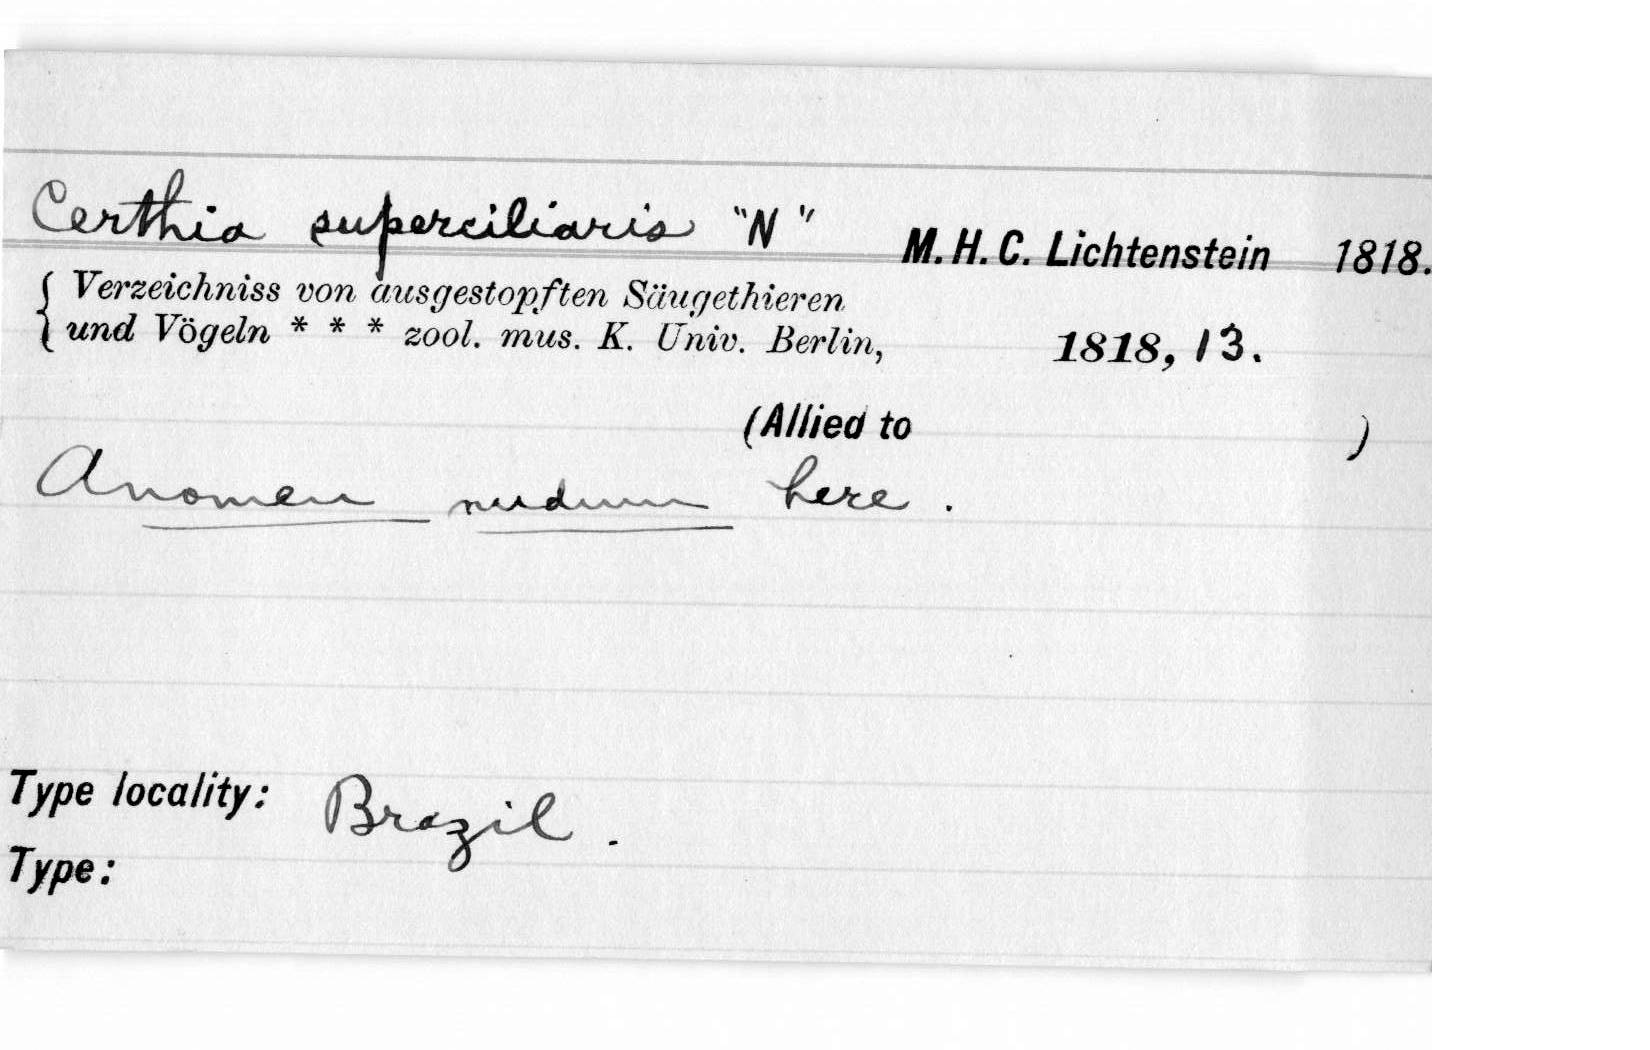 Certhia superciliaris "N" M. H. C. Lichtenstein 1818.
{ Verzeichniss von ausgestopften Säugethieren
und Vögeln * * * zool. mus. K. Univ. Berlin, 1818, 13.
(Allied to )
A nomen nudum here.
Type locality: Brazil.
Type: